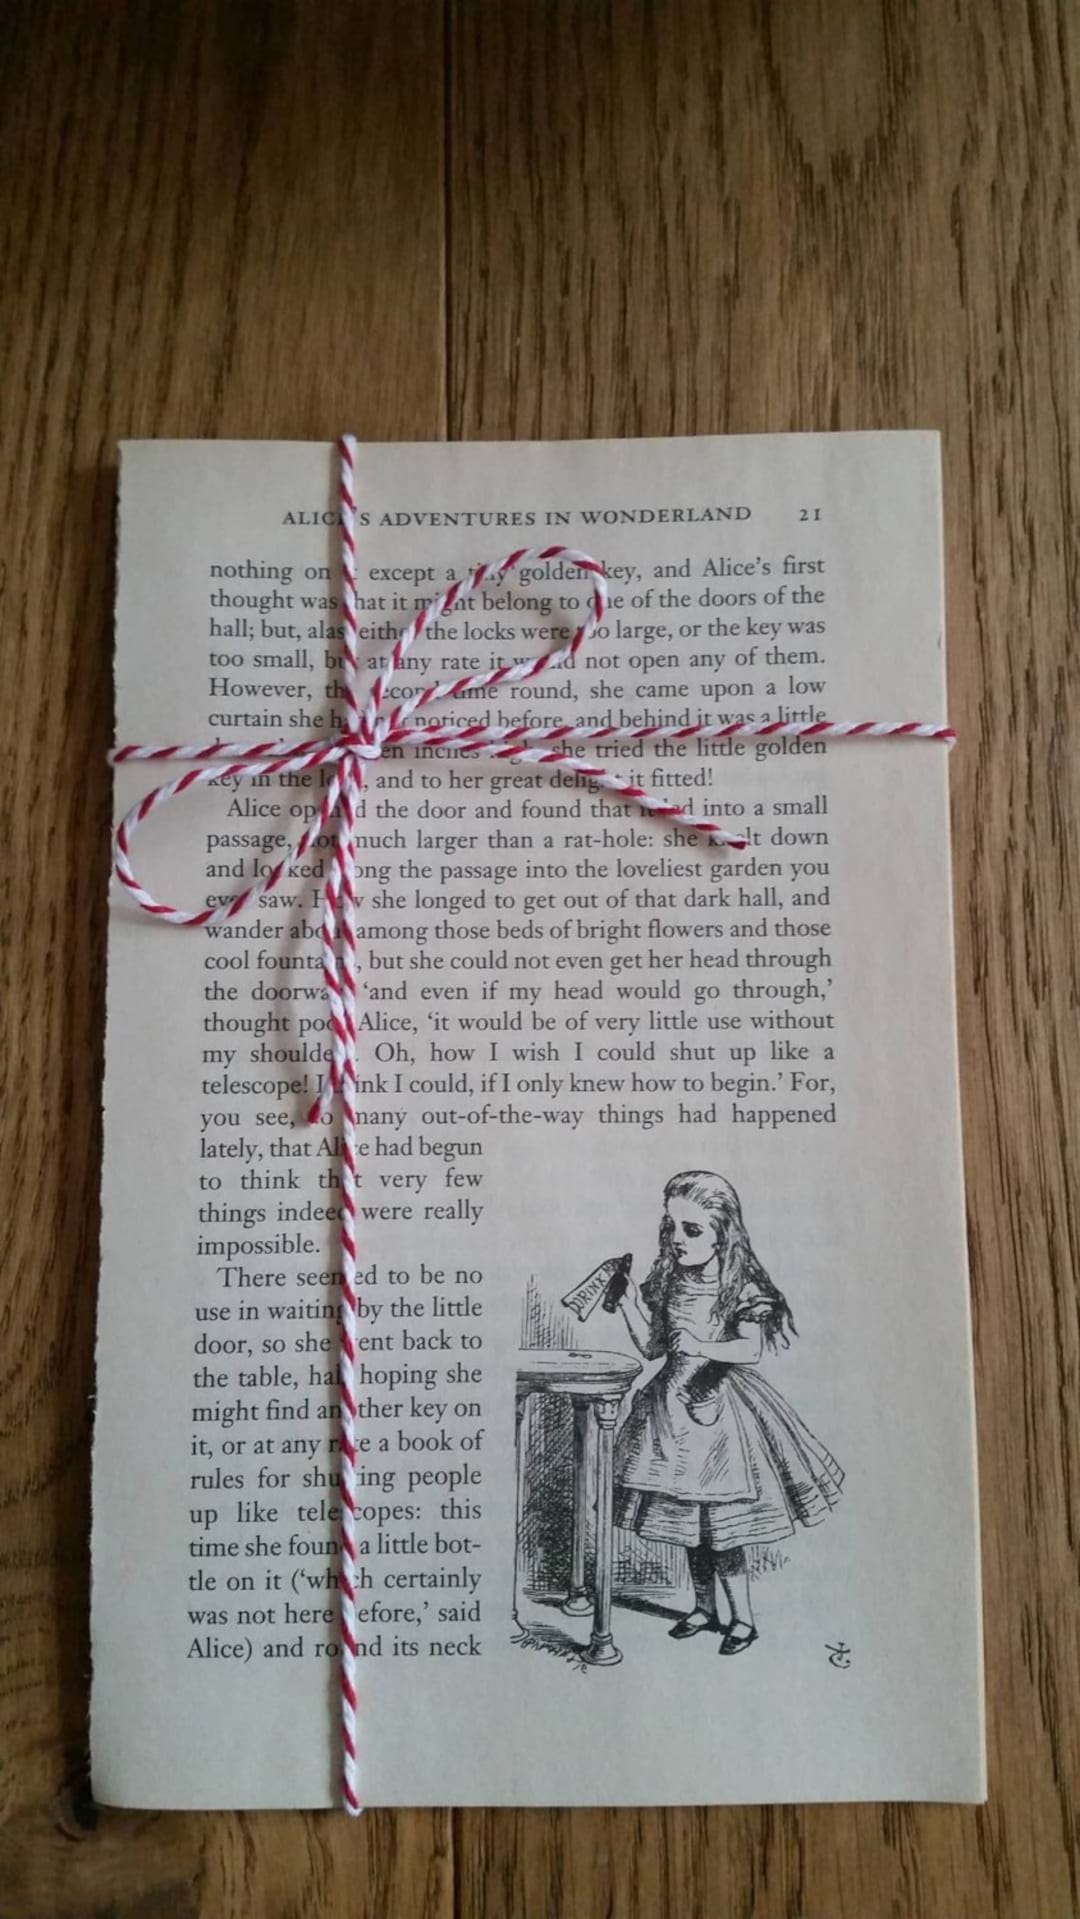 ALICE'S ADVENTURES IN WONDERLAND 21
nothing on except a tiny golden key, and Alice's first
thought was that it might belong to one of the doors of the
hall; but, alas either the locks were too large, or the key was
too small, but at any rate it would not open any of them.
However, the second time round, she came upon a low
curtain she had not noticed before, and behind it was a little
inches she tried the little golden
key in the lock, and to her great delight it fitted!
Alice opened the door and found that it led into a small
passage, not much larger than a rat-hole: she knelt down
and looked along the passage into the loveliest garden you
ever saw. How she longed to get out of that dark hall, and
wander about among those beds of bright flowers and those
cool fountains, but she could not even get her head through
the doorway 'and even if my head would go through,'
thought poor Alice, 'it would be of very little use without
my shoulders. Oh, how I wish I could shut up like a
telescope! I think I could, if I only knew how to begin.' For,
you see, so many out-of-the-way things had happened
lately, that Alice had begun
to think that very few
things indeed were really
impossible.
There seemed to be no
use in waiting by the little
door, so she went back to
the table, half hoping she
might find another key on
it, or at any rate a book of
rules for shutting people
up like telescopes: this
time she found a little bot-
tle on it ('which certainly
was not here before,' said
Alice) and round its neck
DRINK